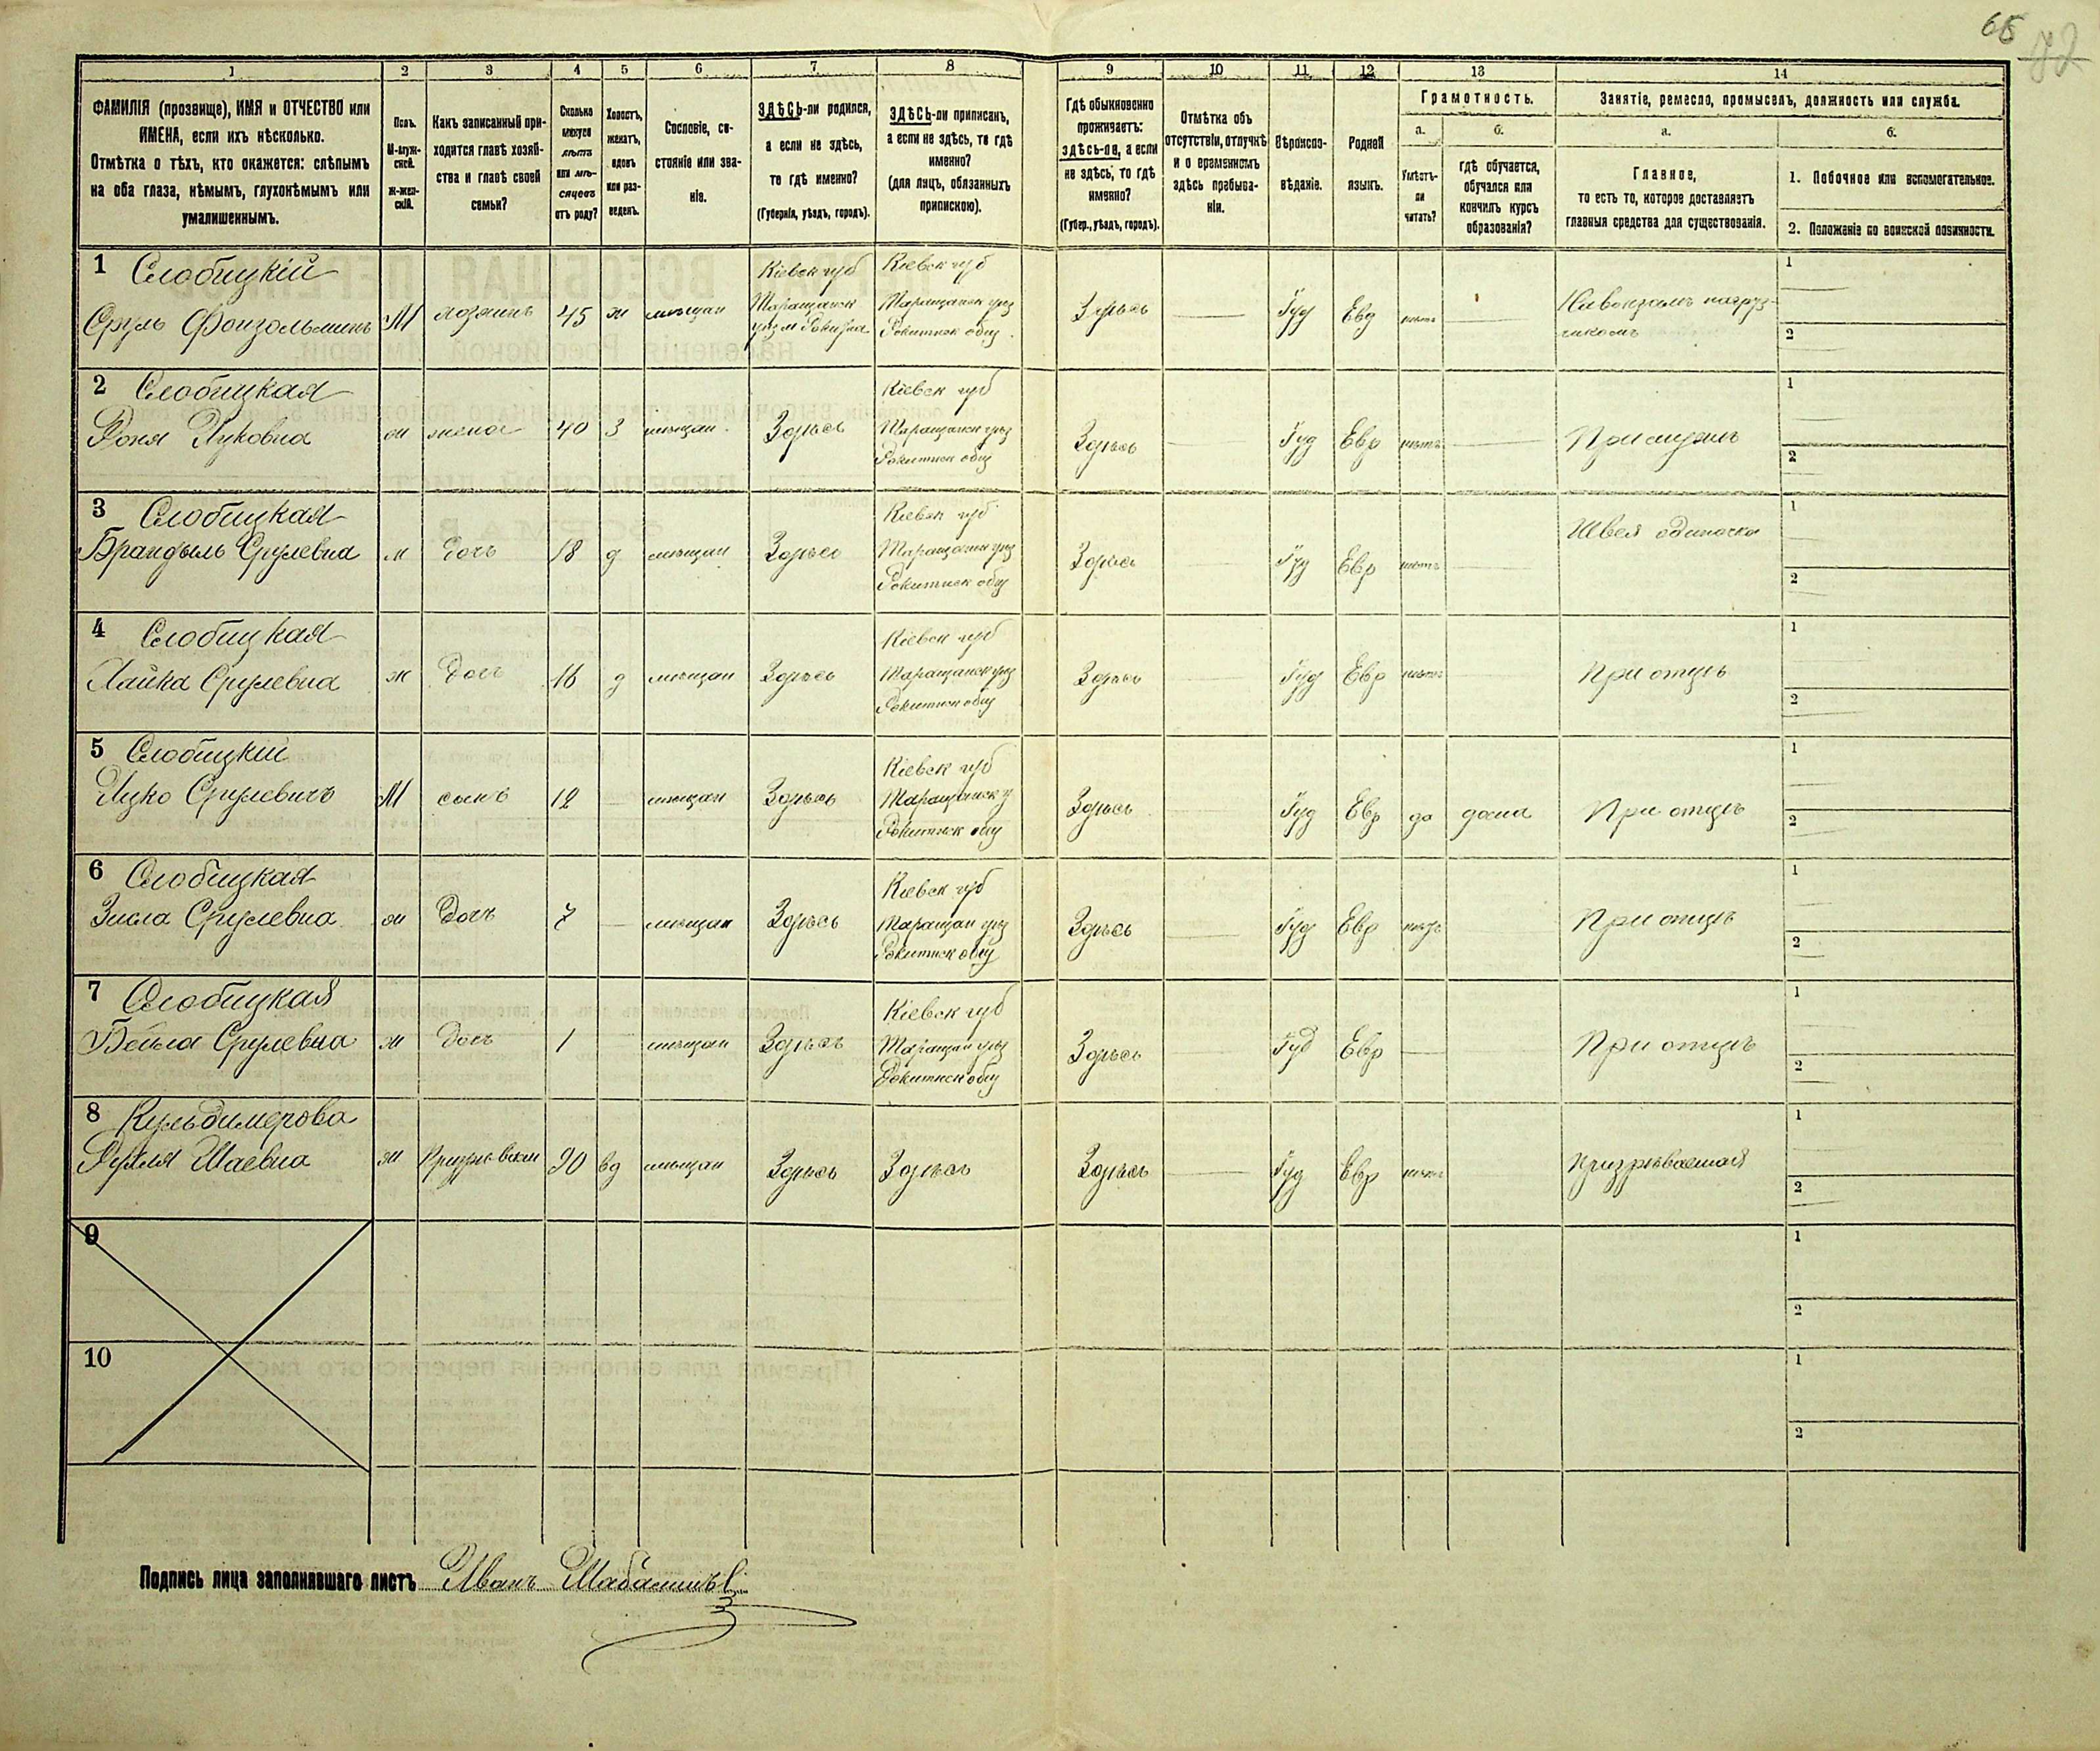 65
72
1 2 3 4 5 6 7 8 9 10 11 12 13 14
ФАМИЛІЯ (прозвище), ИМЯ и ОТЧЕСТВО или ИМЕНА, если ихъ нѣсколько.
Отмѣтка о тѣхъ, кто окажется: слѣпымъ на оба глаза, нѣмымъ, глухонѣмымъ или умалишеннымъ.
Полъ.
М-муж-
ской.
Ж-жен-
скій.
Какъ записанный при-
ходится главѣ хозяй-
ства и главѣ своей
семьи?
Сколько
минуло
лѣтъ
или мѣ-
сяцевъ
отъ роду?
Холостъ,
женатъ,
вдовъ
или раз-
веденъ.
Сословіе, со-
стояніе или зва-
ніе.
ЗДѢСЬ-ли родился,
а если не здѣсь,
то гдѣ именно?
(Губернія, уѣздъ, городъ).
ЗДѢСЬ-ли приписанъ,
а если не здѣсь, то гдѣ
именно?
(для лицъ, обязанныхъ
припискою).
Гдѣ обыкновенно
проживаетъ:
здѣсь-ли, а если
не здѣсь, то гдѣ
именно?
(Губер., уѣздъ, городъ).
Отмѣтка объ
отсутствіи, отлучкѣ
и о временномъ
здѣсь пребыва-
ніи.
Вѣроиспо-
вѣданіе.
Родной
языкъ.
Грамотность.
а.
Умѣетъ-
ли
читать?
б.
гдѣ обучается,
обучался или
кончилъ курсъ
образованія?
Занятіе, ремесло, промыселъ, должность или служба.
а.
Главное,
то есть то, которое доставляетъ
главныя средства для существованія.
б.
1. Побочное или вспомогательное.
2. Положеніе по воинской повинности.
1 Слобицкій
Сруль М хозяинъ 45 ж мѣщан Кіевск губ Таращанск Кіевск губ Таращанск уѣз Рокитнск общ Здѣсь Іуд Евр нѣтъ
1
2
2 Слобицкая
Ицковна ж жена 40 З мѣщан Здѣсь Кіевск губ Таращанск уѣз Рокитнск общ Здѣсь Іуд Евр нѣтъ
1
2
3 Слобицкая
Брандыль Срулевна дочь 18 д мѣщан Здѣсь Кіевск губ Таращанск уѣз Рокитнск общ Здѣсь Іуд Евр нѣтъ Швея одиночка
1
2
4 Слобицкая
Хайка Срулевна ж дочь 16 д мѣщан Здѣсь Кіевск губ Таращанск уѣз Рокитнск общ Здѣсь Іуд Евр нѣтъ При отцѣ
1
2
5 Слобицкій
Ицко Срулевичъ М сынъ 12 мѣщан Здѣсь Кіевск губ Таращанск у Рокитнск общ Здѣсь Іуд Евр да дома При отцѣ
1
2
6 Слобицкая
Зисла Срулевна ж дочь 7 мѣщан Здѣсь Кіевск губ Таращан уѣз Рокитнск общ Здѣсь Іуд Евр нѣтъ При отцѣ
1
2
7 Слобицкая
Бейла Срулевна ж дочь 1 мѣщан Здѣсь Кіевск губ Таращан уѣз Рокитнск общ Здѣсь Іуд Евр При отцѣ
1
2
8 Кульдимерова
Шаевна ж 90 вд мѣщан Здѣсь Здѣсь Здѣсь Іуд Евр нѣтъ призрѣваемая
1
2
9
1
2
10
1
2
Подпись лица заполнявшаго листъ Иванъ